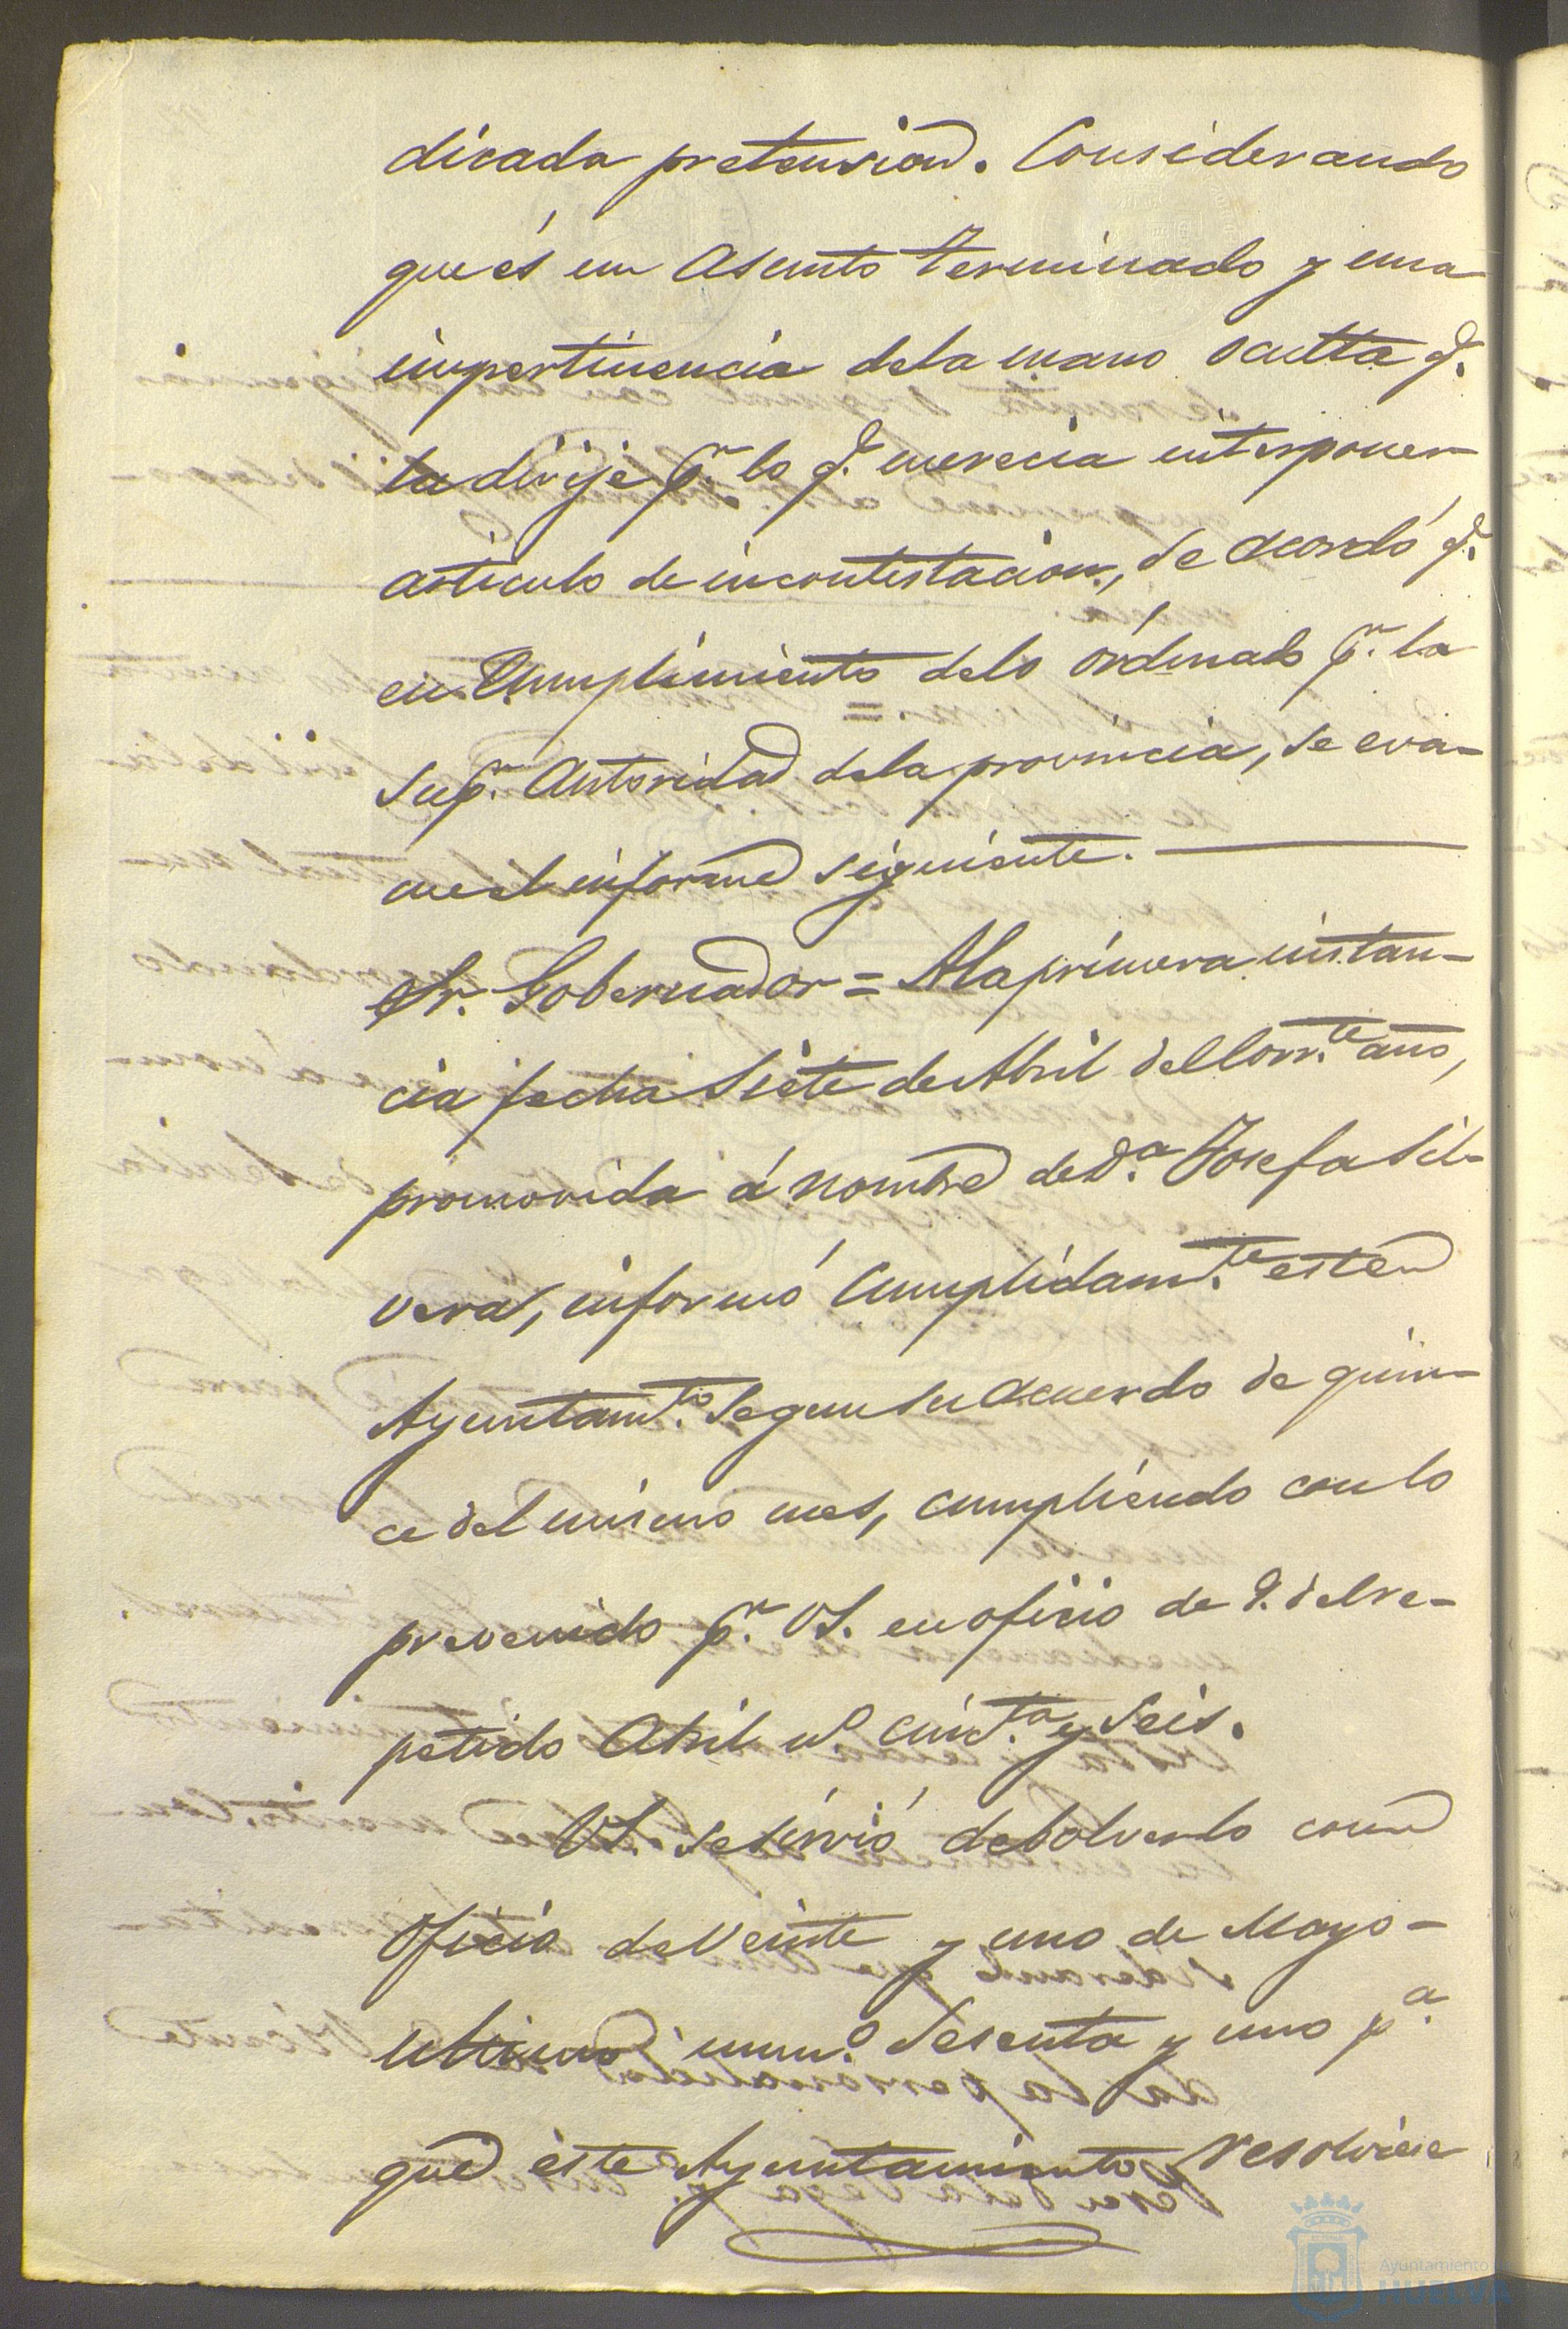 dicada pretension. Considerando
que és un asunto terminado y una
impertinencia dela mano oculta q.
la dirije pr. lo q. merecia interponer
articulo de incontestacion, se acordó q.
en cumplimiento delo órdenado pr. la
supr. Autoridad dela provincia, se eva-
cue el informe siguiente.
Sr. Gobernador = A la primera instan-
cia fecha siete de Abril del corrte. año,
promovida á nombre de Da. Josefa Sil-
vera, informó cumplidamte. este
Ayuntamto. segun su acuerdo de quin-
ce del mismo mes, cumpliendo con lo
prevenido pr. VS. en oficio de 9. del re-
petido Abril no. cincta. y seis.
VS. se sirvió debolverlo con
oficio de veinte y uno de Mayo-
ultimo numo. sesenta y uno pa.
que éste Ayuntamiento resolviese
Ayuntamiento
HUELVA